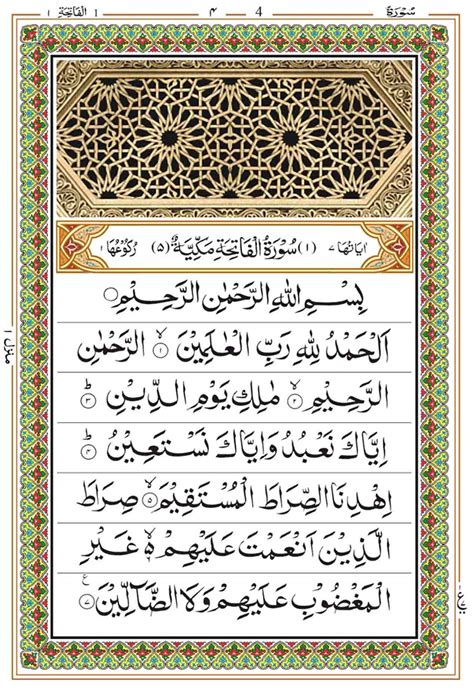 سُوْرَةُ 4 ۴ ١ الفَاتِحَة ١
اٰيَاتُهَا ٧ (١) سُوْرَةُ الْفَاتِحَةِ مَكِّيَّةٌ (٥) رُكُوْعُهَا ١
بِسْمِ اللّٰهِ الرَّحْمٰنِ الرَّحِيْمِ
اَلْحَمْدُ لِلّٰهِ رَبِّ الْعٰلَمِيْنَ ۙ﴿١﴾ الرَّحْمٰنِ
الرَّحِيْمِ ۙ﴿٢﴾ مٰلِكِ يَوْمِ الدِّيْنِ ؕ﴿٣﴾
اِيَّاكَ نَعْبُدُ وَاِيَّاكَ نَسْتَعِيْنُ ؕ﴿٤﴾
اِهْدِنَا الصِّرَاطَ الْمُسْتَقِيْمَ ۙ﴿٥﴾ صِرَاطَ
الَّذِيْنَ اَنْعَمْتَ عَلَيْهِمْ ۙ۬ غَيْرِ
الْمَغْضُوْبِ عَلَيْهِمْ وَلَا الضَّآلِّيْنَ ﴿٧﴾ ع
منزل ١